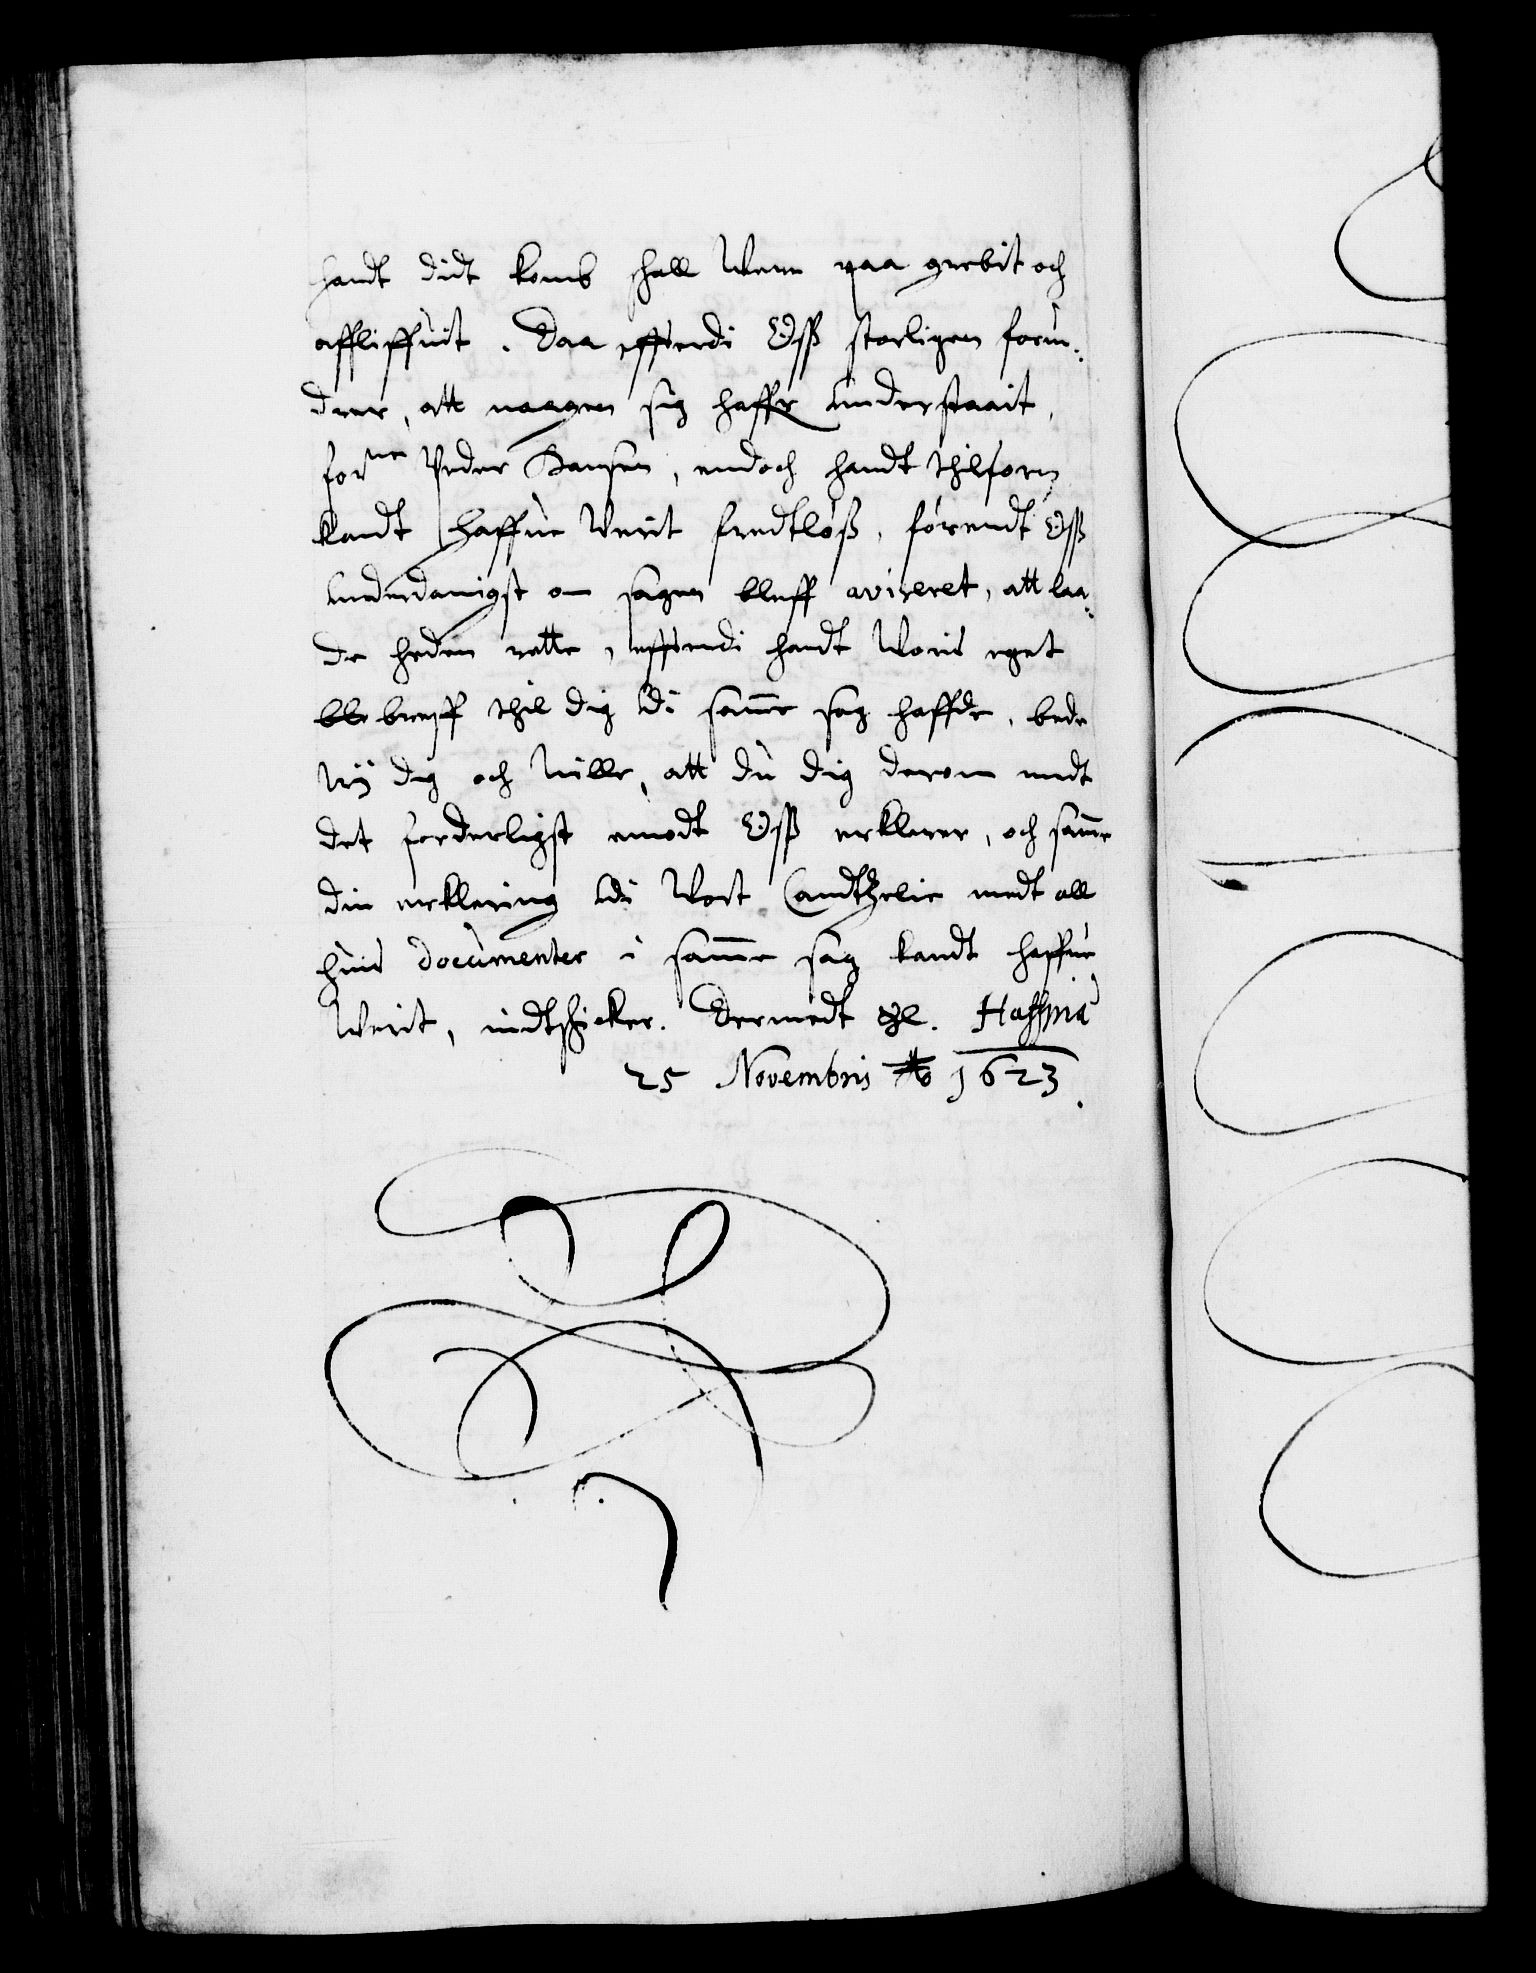 handt didt komb skall Were paa grebit och
affliffuit. Daa effterdi Oss storligen forun¬
drer, att naagen sig haffr understaait,
forne Peder Hansen, endoch handt thilforn
kandt haffue Verit fredtløss, førendt Oss
underdanigst om sagen bleff aviseret, att laa¬
de heden rette, effterdi handt Woris eget
ble breff thil dig Udi samme sag haffde, bede
Wij dig och Wille, att du dig derom medt
det forderligst emodt Oss erklerer, och samme
din erklering Udi Wort Cantzelie medt all
huis documenter i samme sag kandt haffue
Werit, indtskicker. Dermedt &c. Haffniæ
25 Novembris Ao 1623.